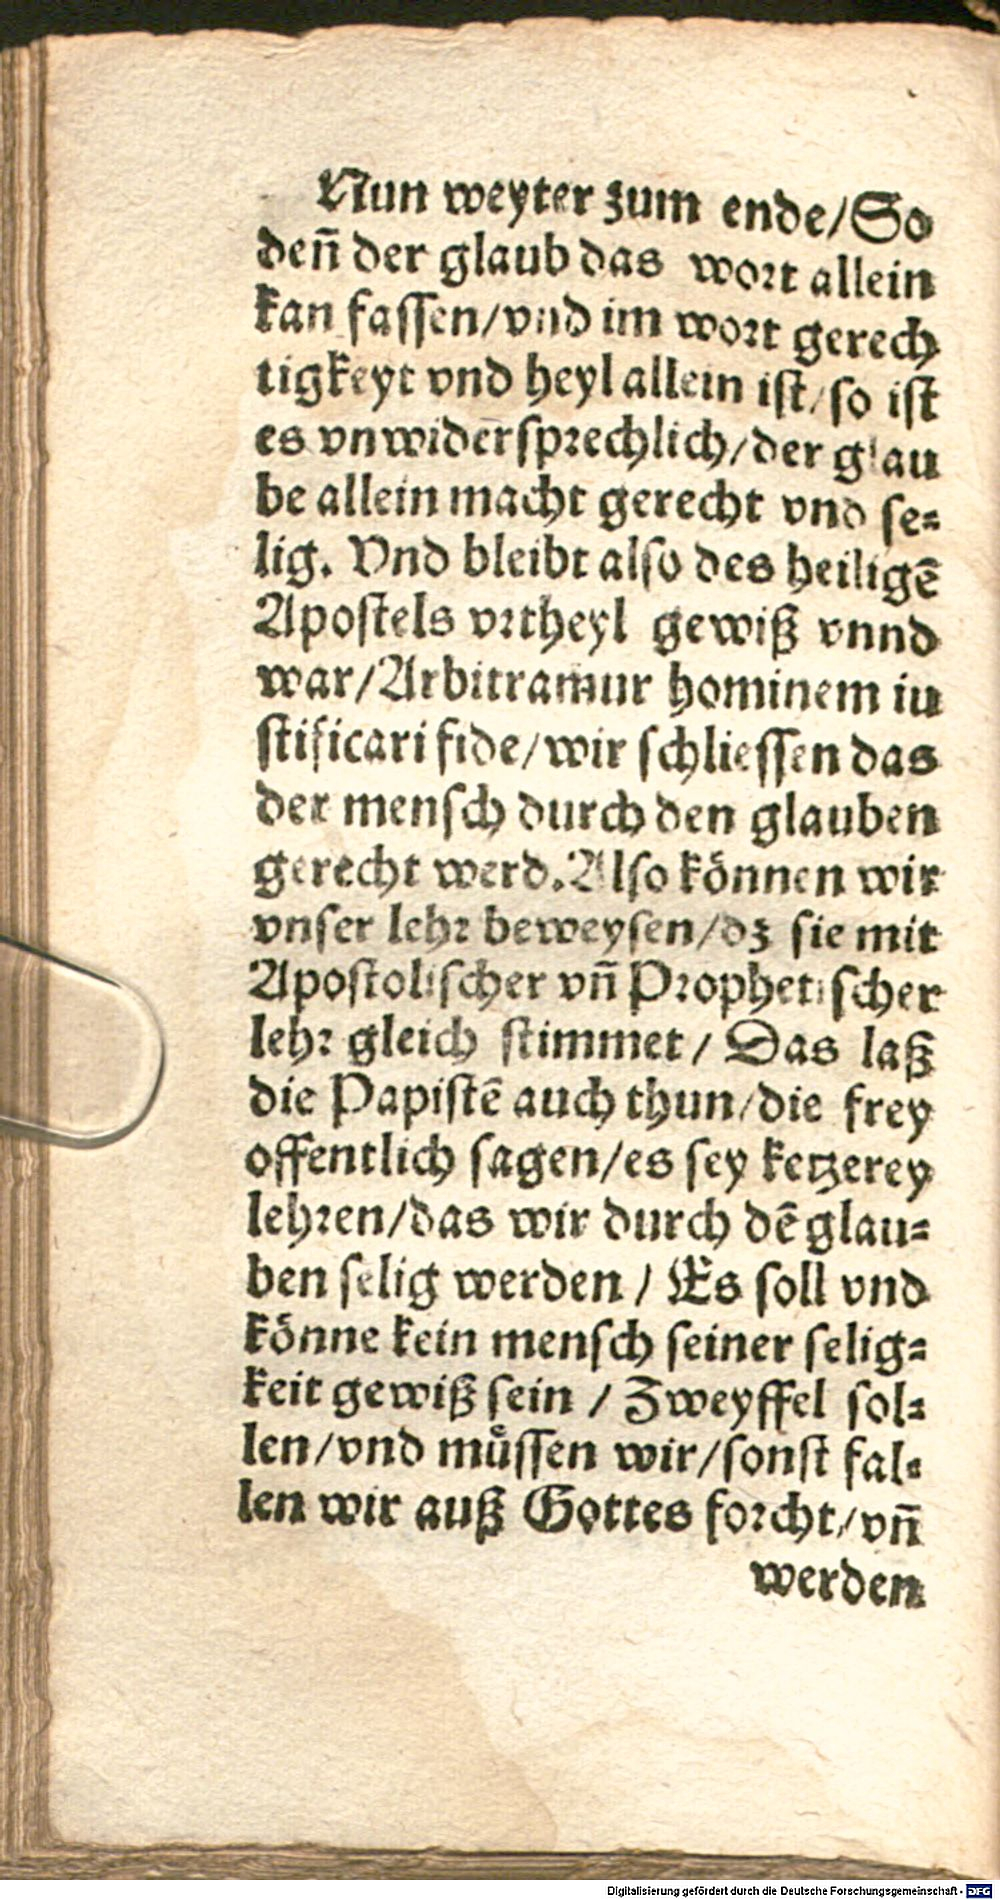 Nun weyter zum ende/So
deñ der glaub das wort allein
kan fassen/vnd im wort gerech
tigkeyt vnd heyl allein ist/so ist
es vnwidersprechlich/der glau
be allein macht gerecht vnd se-
lig. Vnd bleibt also des heiligẽ
Apostels vrtheyl gewiß vnnd
war/Arbitramur hominem iu
stificari fide/wir schliessen das
der mensch durch den glauben
gerecht werd. Also können wir
vnser lehr beweysen/dz sie mit
Apostolischer vñ Prophetischer
lehr gleich stimmet/ Das laß
die Papistẽ auch thun/die frey
offentlich sagen/es sey ketzerey
lehren/das wir durch dẽ glau-
ben selig werden / Es soll vnd
könne kein mensch seiner selig-
keit gewiß sein / Zweyffel sol-
len/vnd muͤssen wir/sonst fal-
len wir auß Gottes forcht/vñ
werden
Digitalisierung gefördert durch die Deutsche Forschungsgemeinschaft - DFG